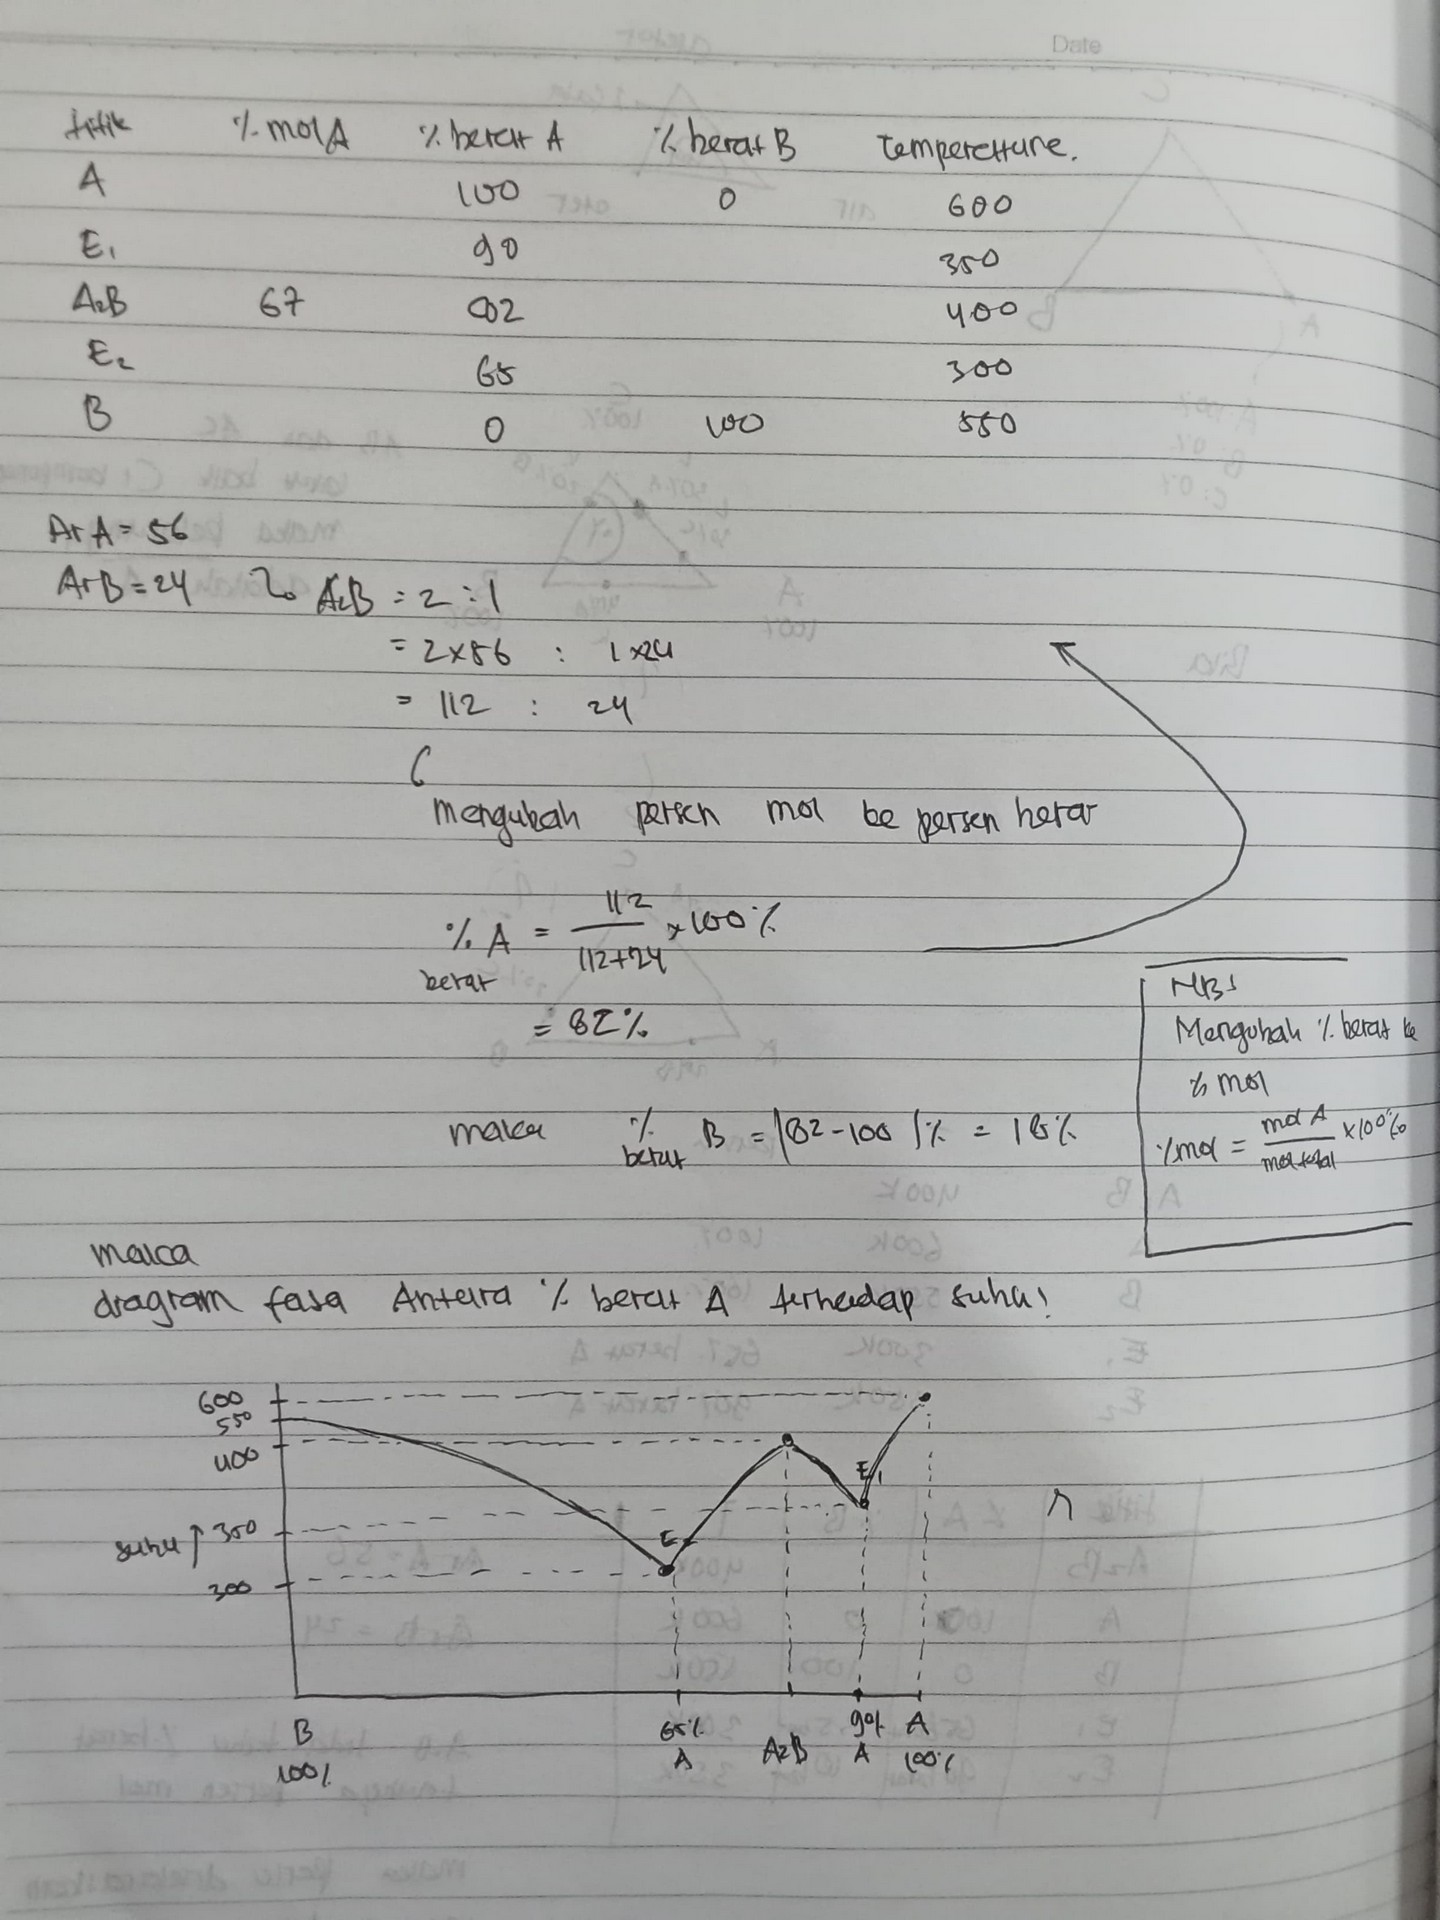 Date
titik % mol A % berat A % berat B temperature.
A 100 0 600
E1 90 350
A2B 67 82 400
E2 65 300
B 0 100 550
Ar A = 56
Ar B = 24 A2B = 2 : 1
= 2x56 : 1x24
= 112 : 24
mengubah persen mol ke persen berat
% A = 112 / 112+24 x 100%
berat
= 82%
NB:
Mengubah % berat ke
% mol
% mol = mol A / mol total x 100%
maka % berat B = |82-100|% = 18%
maka
diagram fasa Antara % berat A terhadap suhu!
600
550
400
350
300
suhu ↑
E
E1
B
100%
65%
A
A2B
90%
A
A
100%